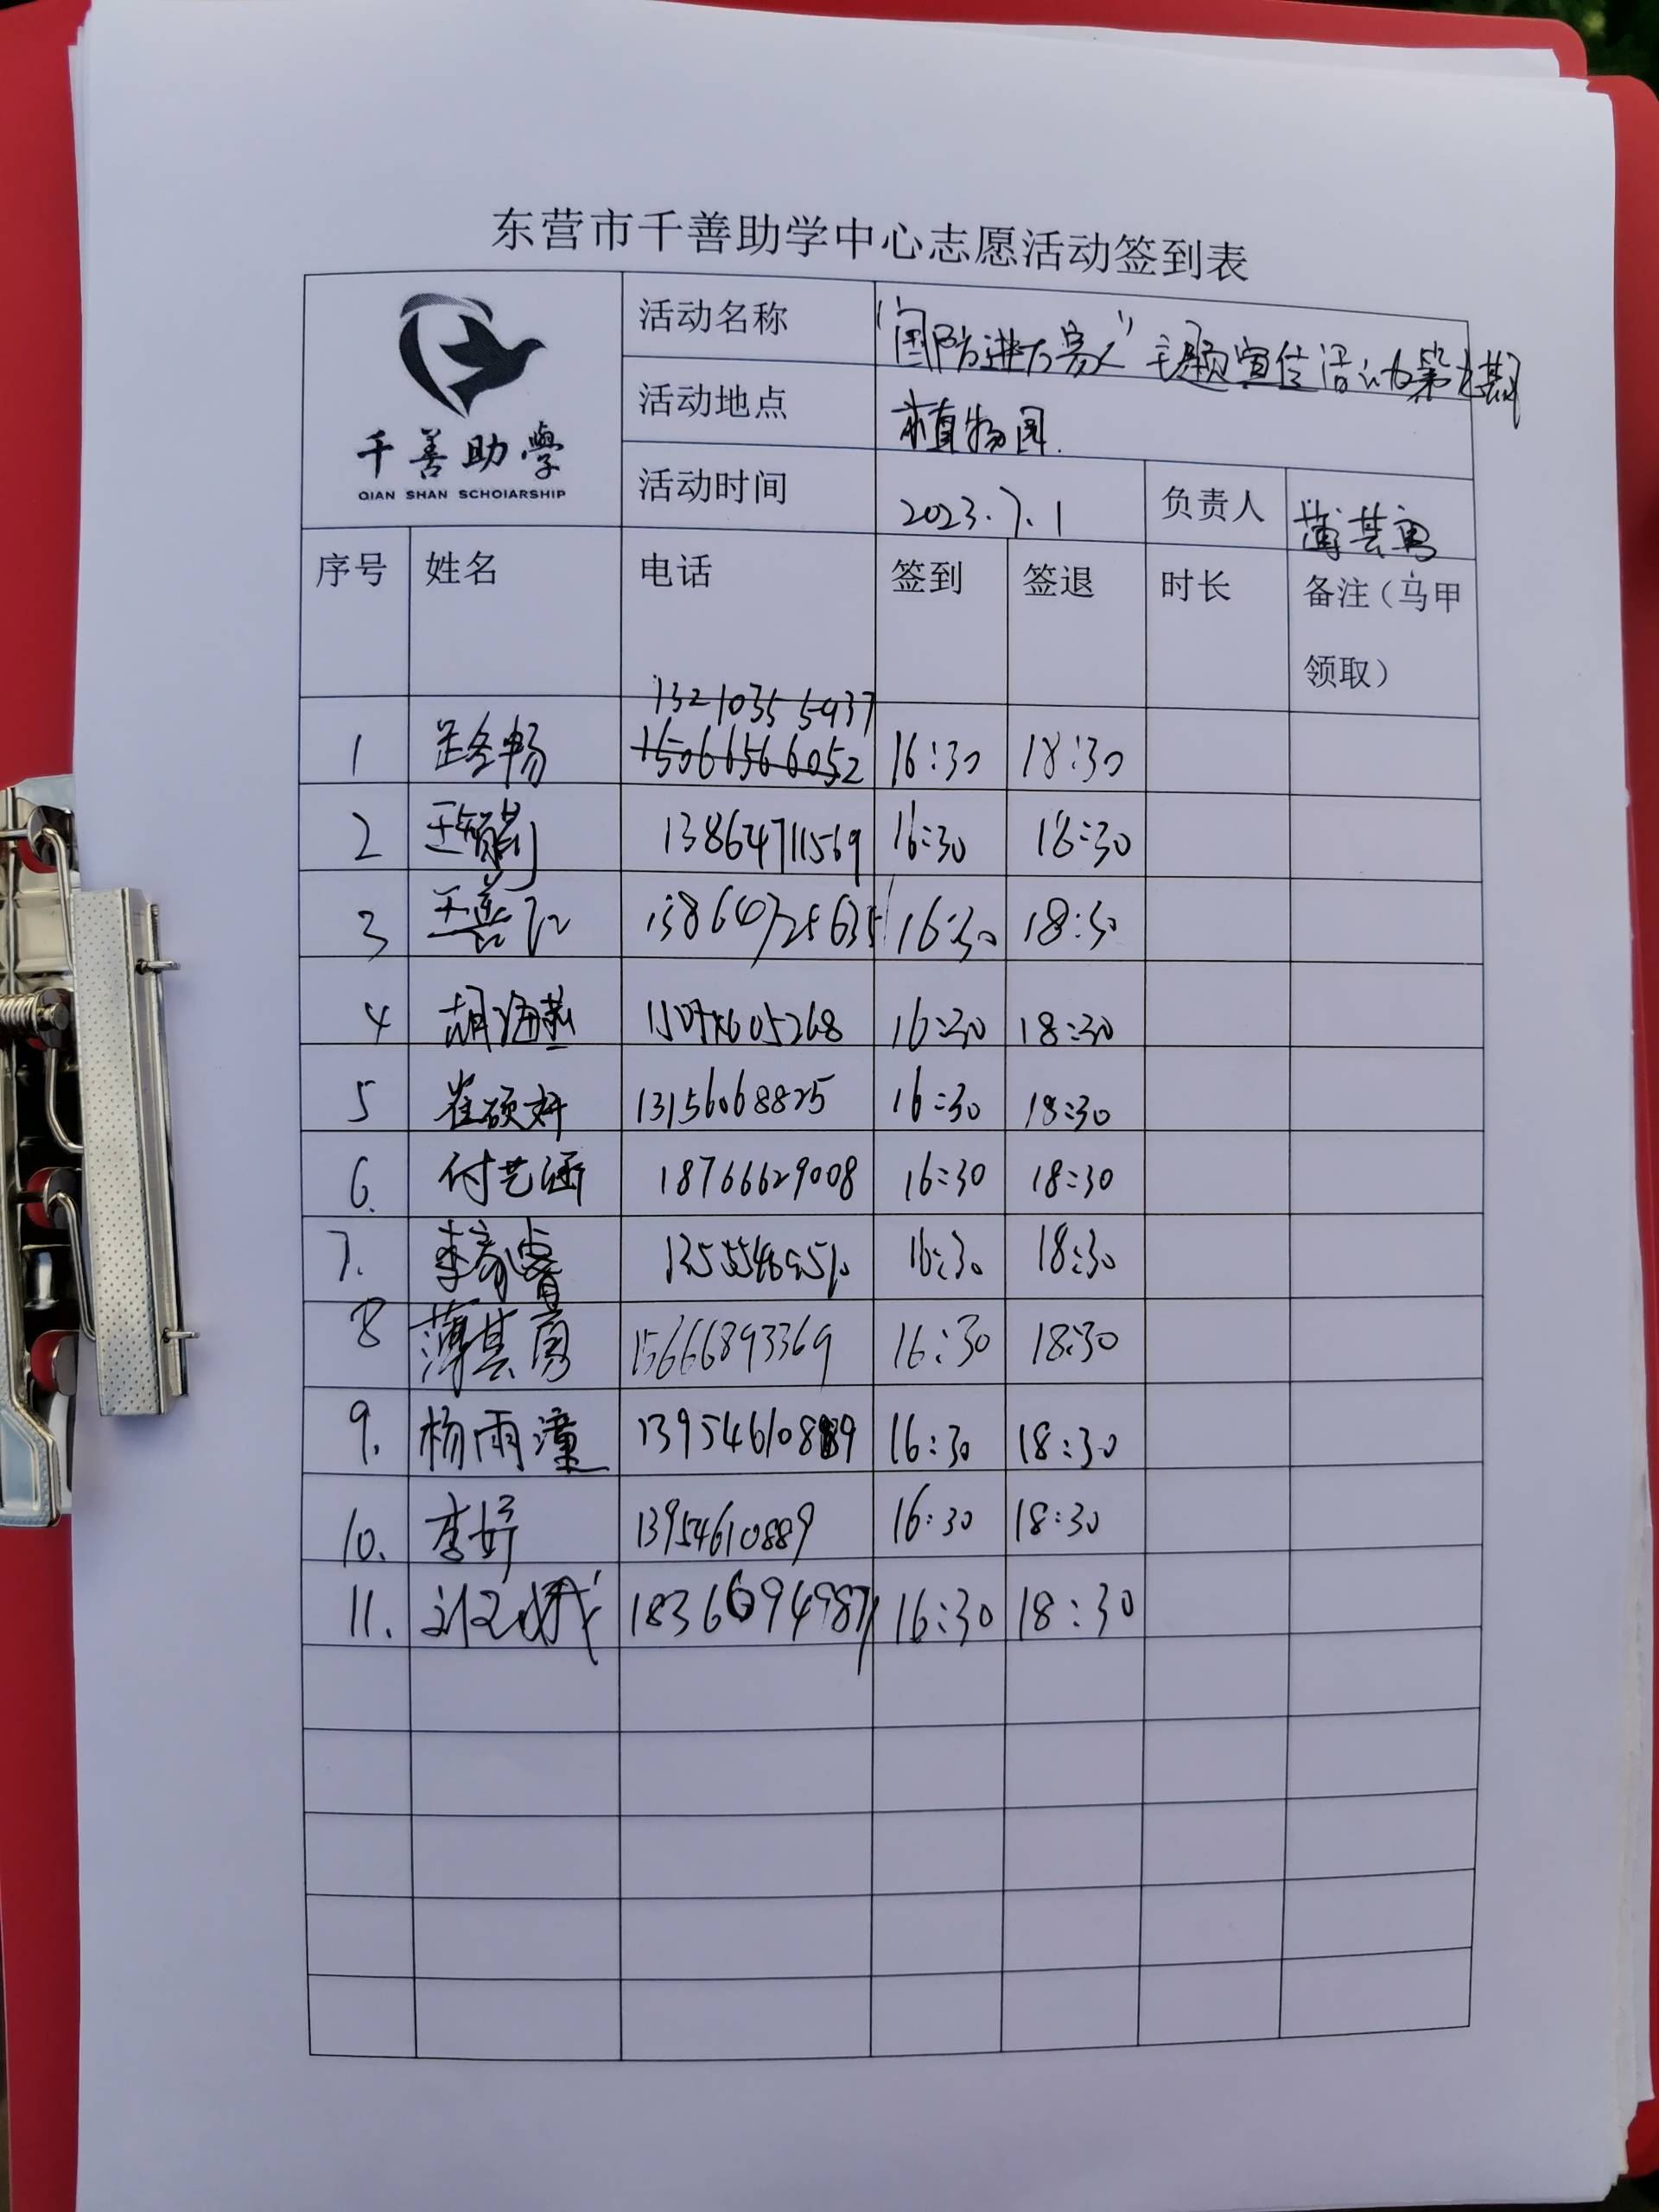 东营市千善助学中心志愿活动签到表
千善助學
QIAN SHAN SCHOIARSHIP
活动名称 "国防进万家" 主题宣传活动第期
活动地点 植物园.
活动时间 2023.7.1 负责人 薄其
序号 姓名 电话 签到 签退 时长 备注（马甲领取）
13210355937
1 畅 15066566052 16:30 18:30
2 王 13864711569 16:30 18:30
3 王善 16:30 18:30
4 胡海燕 16:30 18:30
5 崔硕妍 13156068825 16:30 18:30
6. 付艺涵 18766629008 16:30 18:30
7. 李睿 16:30 18:30
8 薄其 15666893369 16:30 18:30
9. 杨雨潼 13954610889 16:30 18:30
10. 李妤 13954610889 16:30 18:30
11. 刘 18366949871 16:30 18:30